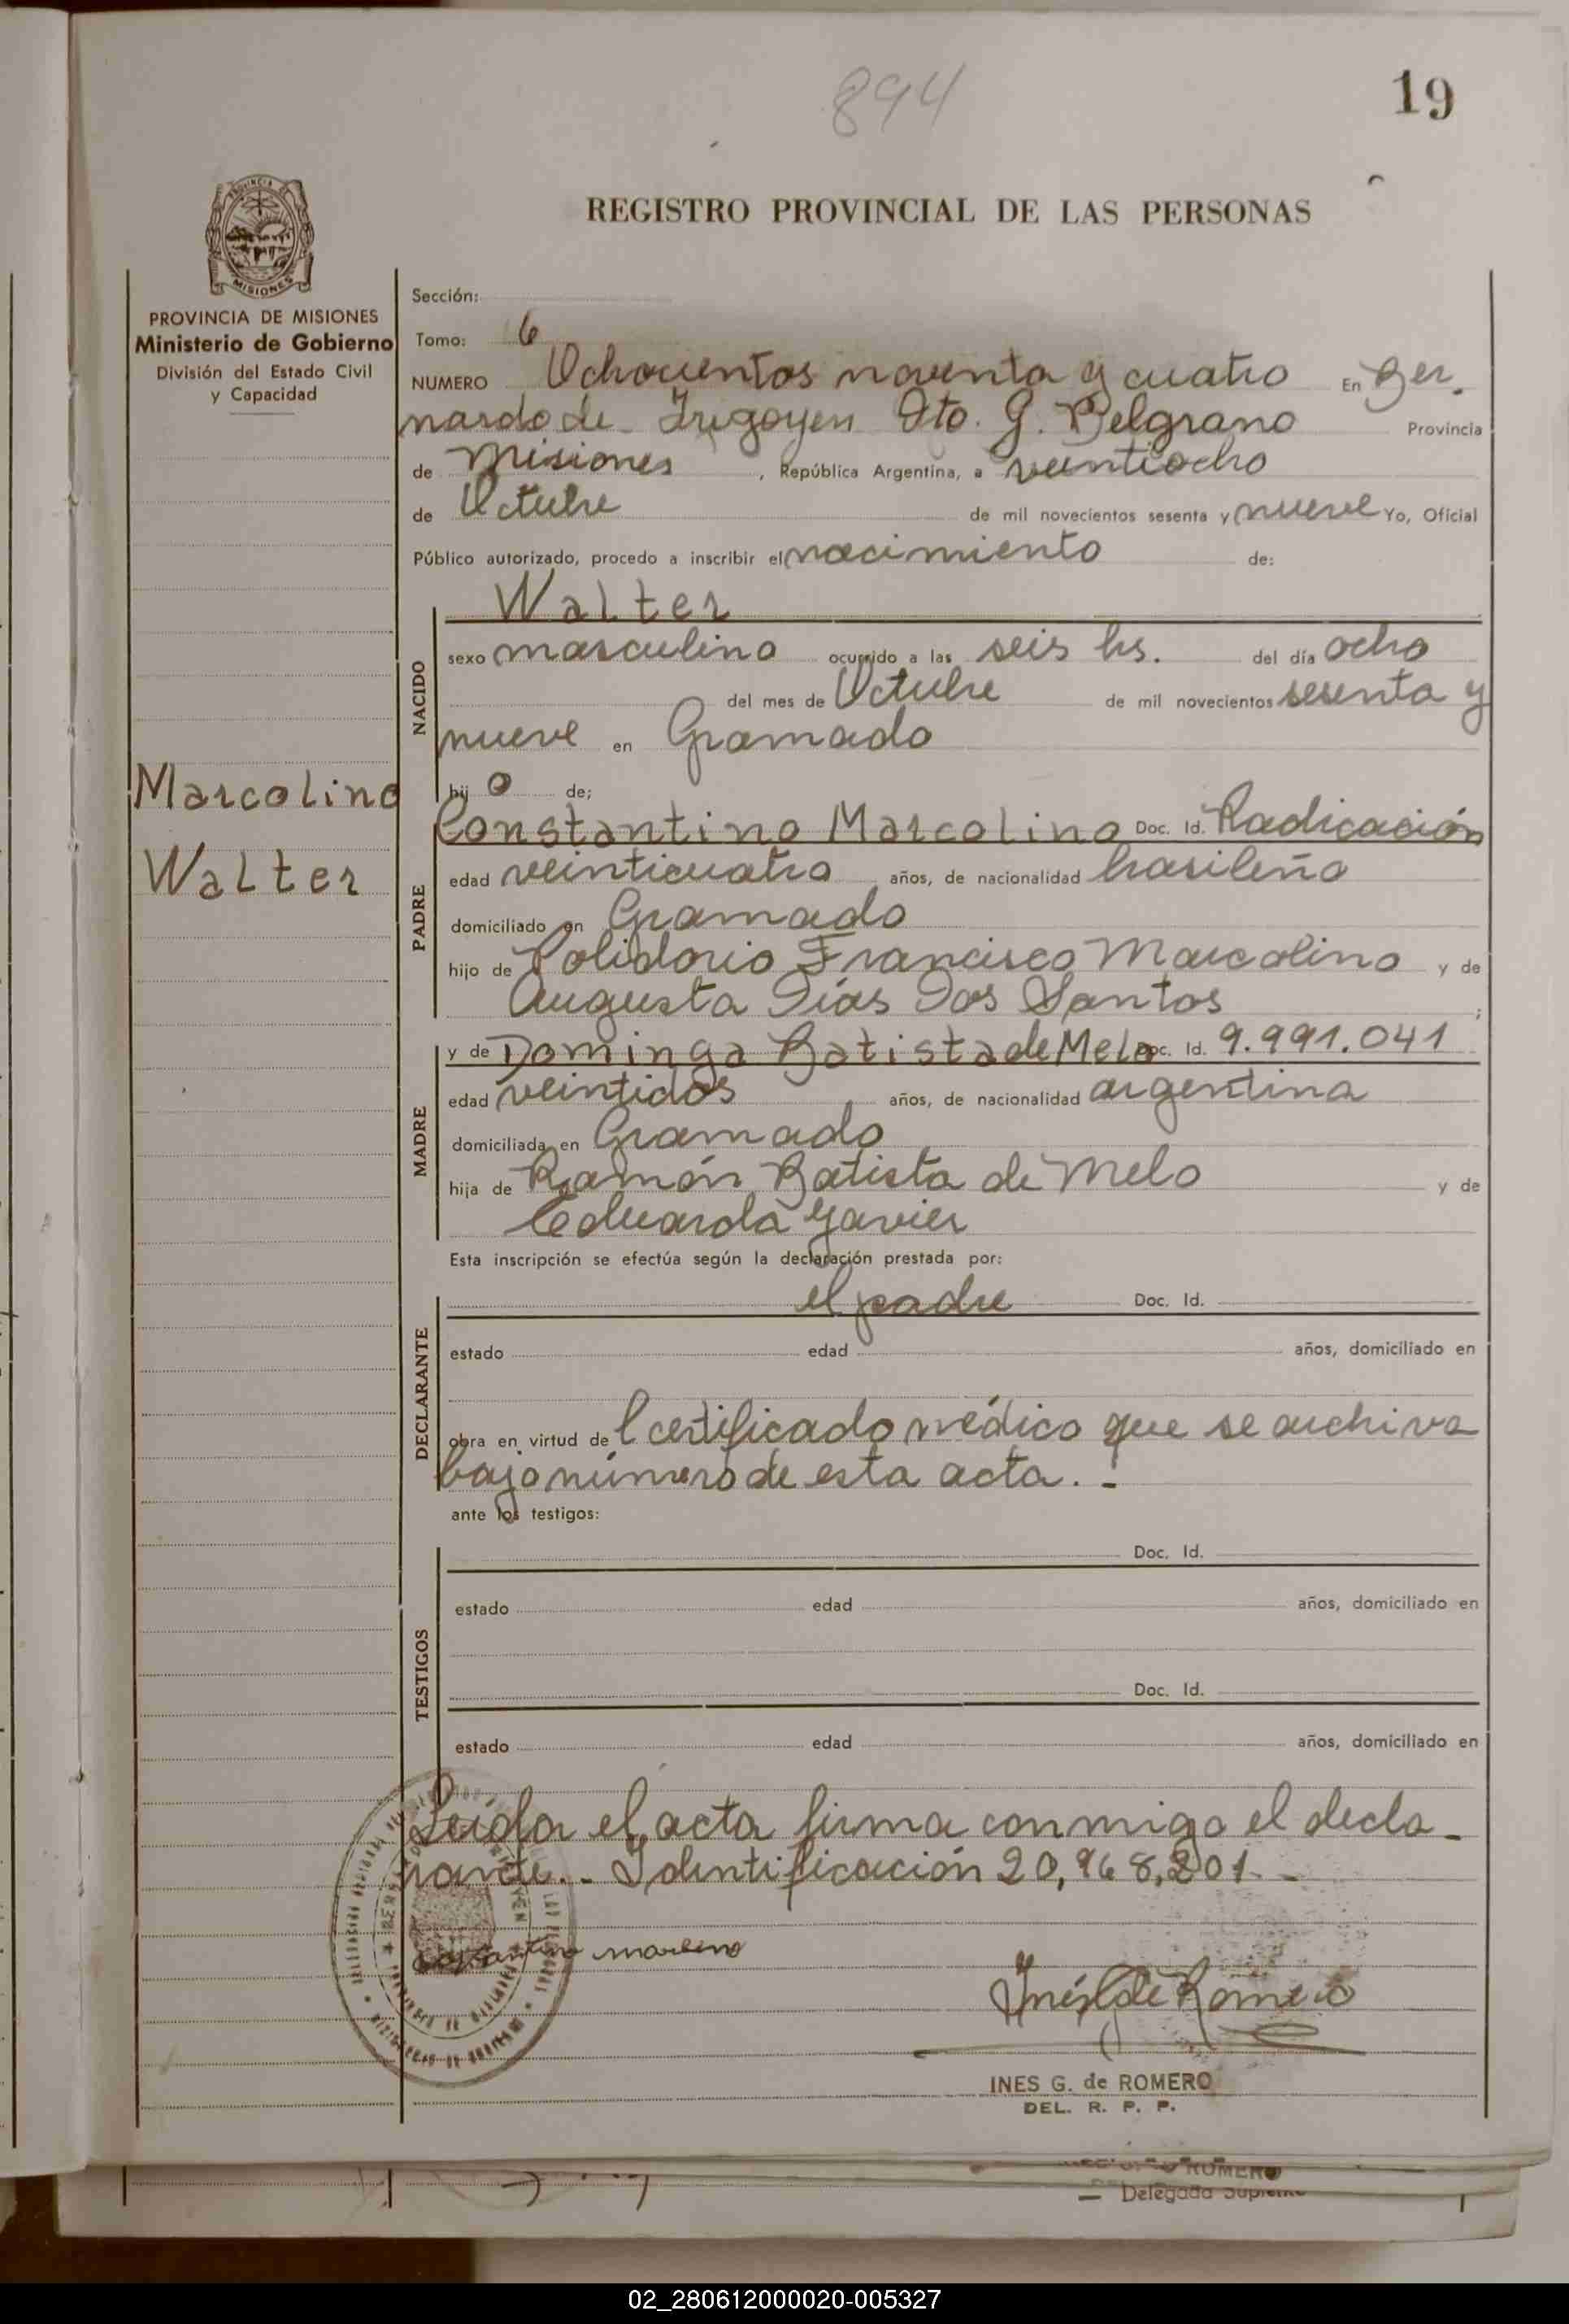 894
19
PROVINCIA DE
MISIONES
REGISTRO PROVINCIAL DE LAS PERSONAS
PROVINCIA DE MISIONES
Ministerio de Gobierno
División del Estado Civil
y Capacidad
Marcolino
Walter
Sección:
Tomo: 6
NUMERO Ochocientos noventa y cuatro En Ber.
nardo de Irigoyen Dto. G. Belgrano Provincia
de Misiones , República Argentina, a veintiocho
de Octubre de mil novecientos sesenta y nueve Yo, Oficial
Público autorizado, procedo a inscribir el nacimiento de:
Walter
NACIDO
sexo masculino ocurrido a las seis hs. del día ocho
del mes de Octubre de mil novecientos sesenta y
nueve en Gramado
hij o de;
PADRE
Constantino Marcolino Doc. Id. Radicación
edad veinticuatro años, de nacionalidad brasileña
domiciliado en Gramado
hijo de Polidorio Francisco Marcolino y de
Augusta Días Dos Santos ;
MADRE
y de Dominga Batista de Melo Doc. Id. 9.991.041
edad veintidos años, de nacionalidad argentina
domiciliada en Gramado
hija de Ramón Batista de Melo y de
Eduarda Yavier
Esta inscripción se efectúa según la declaración prestada por:
DECLARANTE
el padre Doc. Id.
estado edad años, domiciliado en
obra en virtud de l certificado médico que se archiva
bajo número de esta acta. -
ante los testigos:
TESTIGOS
Doc. Id.
estado edad años, domiciliado en
Doc. Id.
estado edad años, domiciliado en
Leida el acta firma conmigo el decla-
rante.- Identificación 20,968,201.-
Inés G de Romero
INES G. de ROMERO
DEL. R. P. P.
ROMERO
Delegada Suplente
02_280612000020-005327